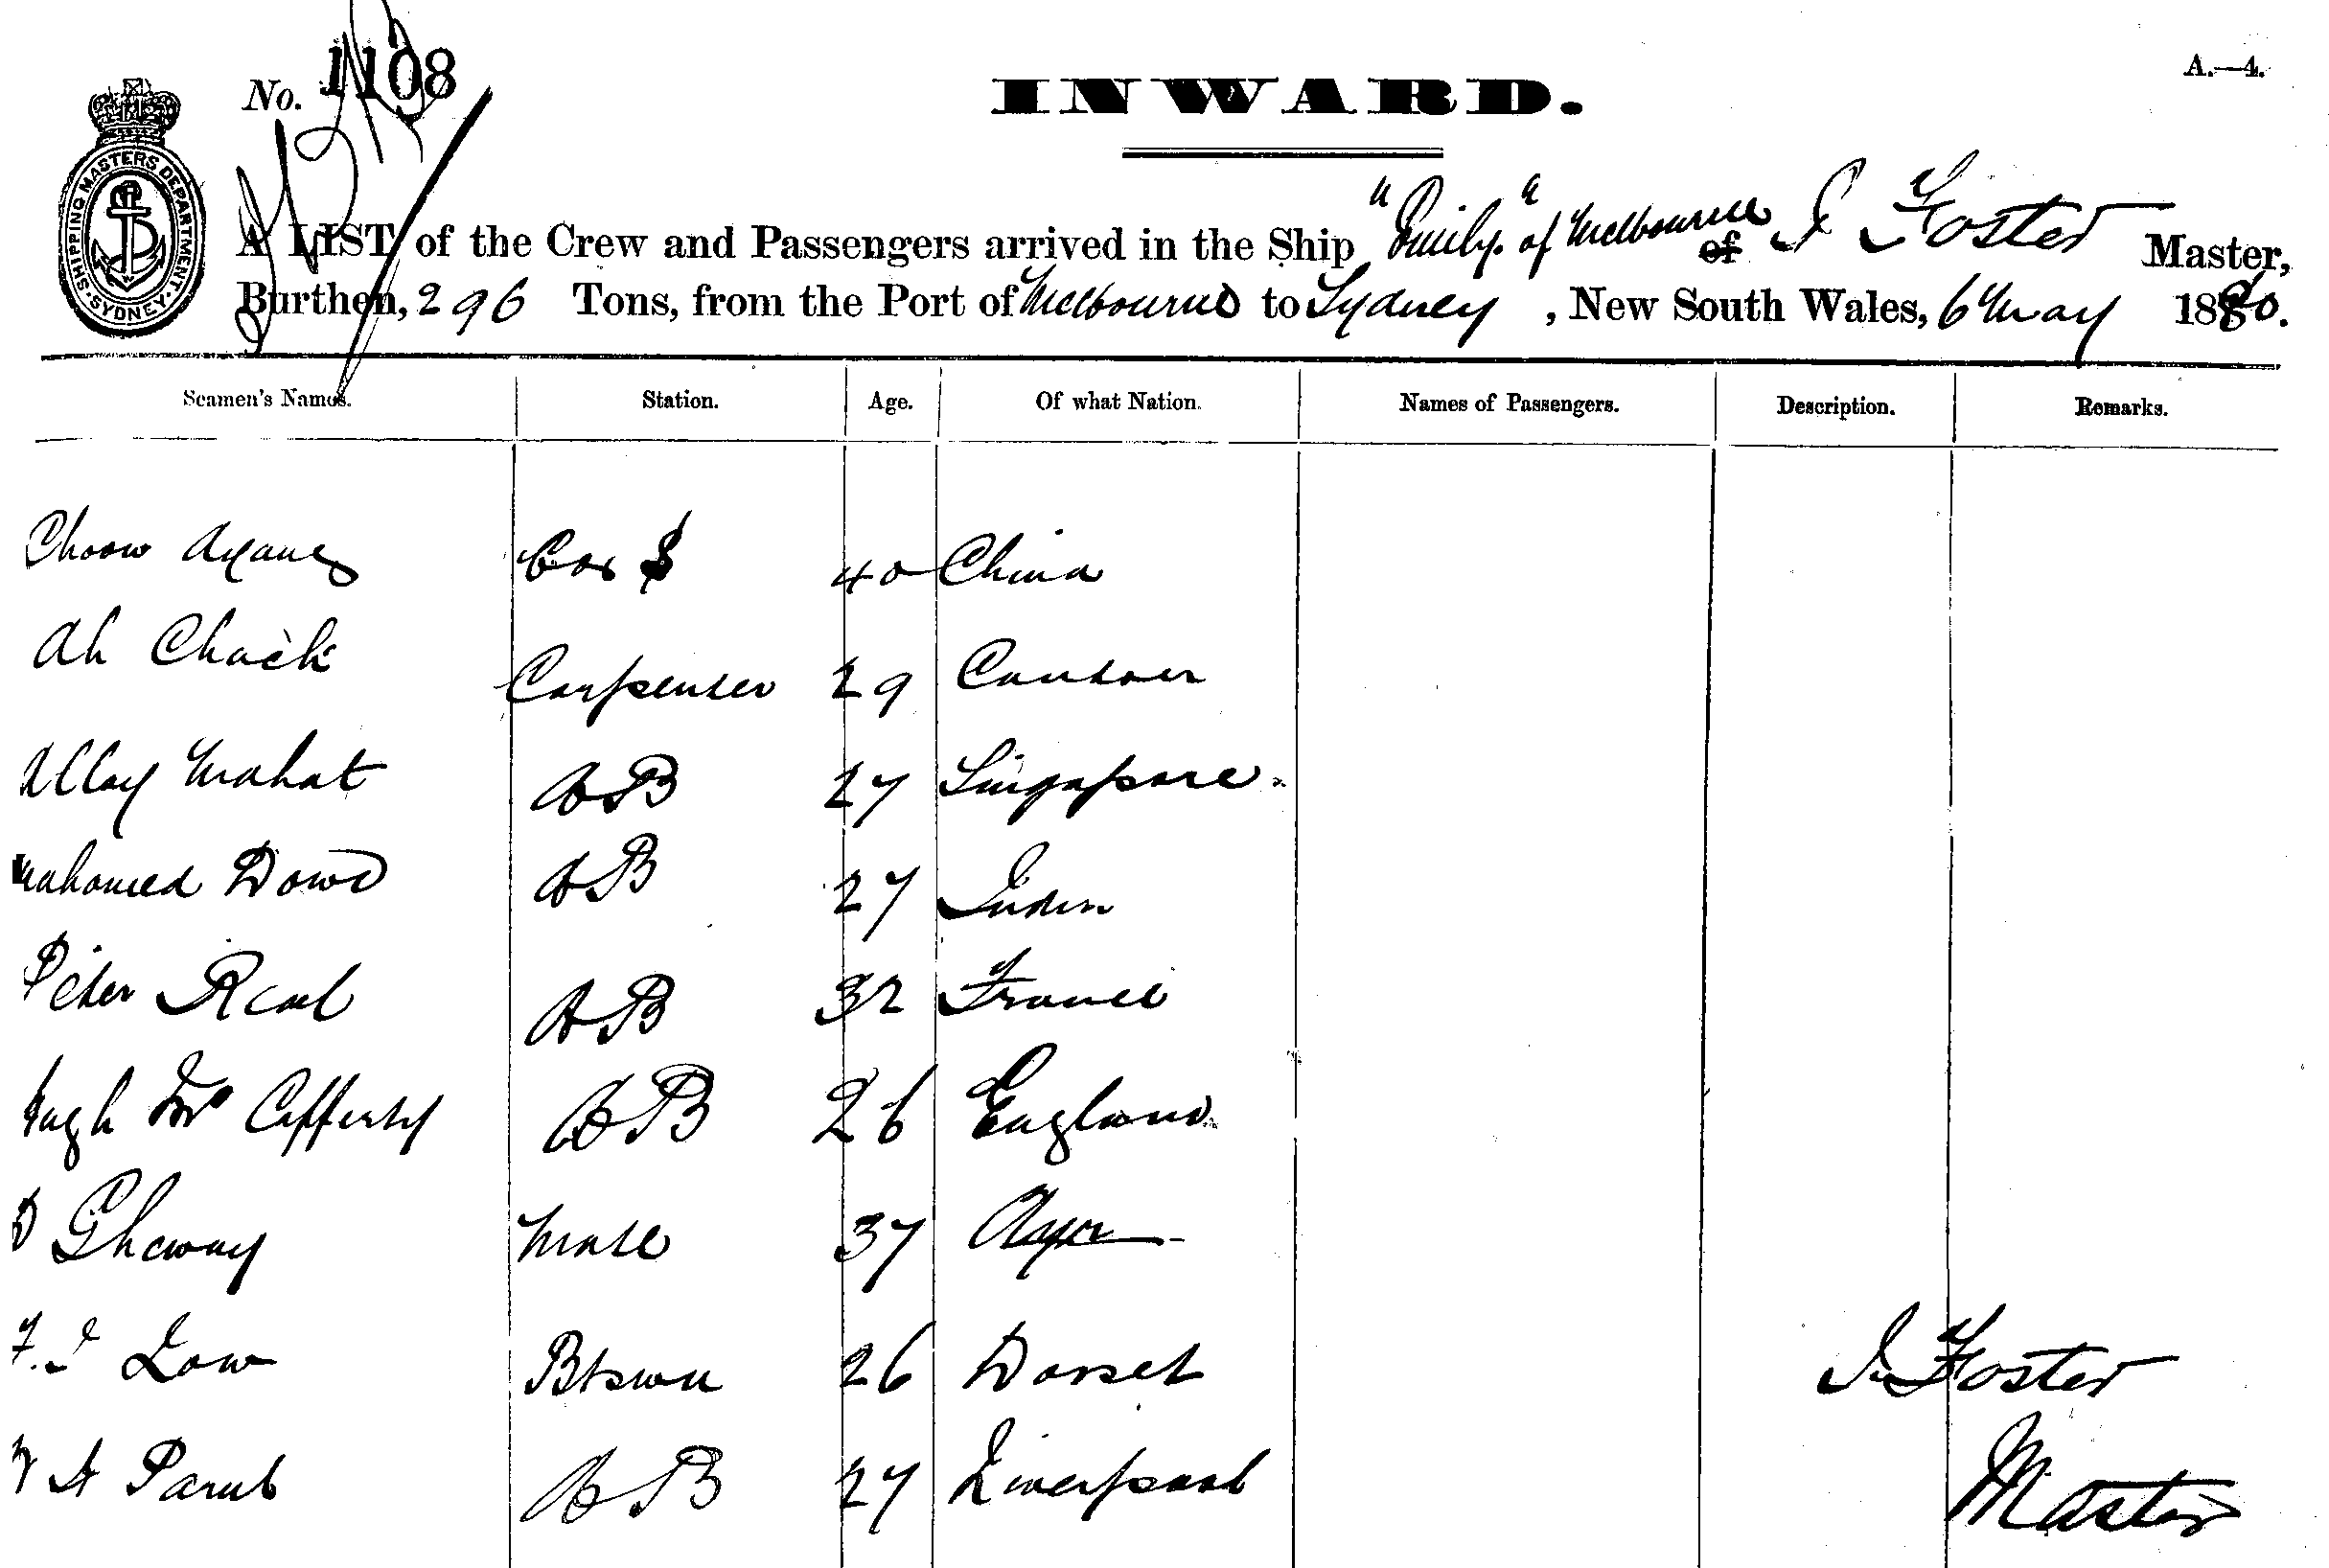 A.—4.
No. 1108
INWARD.
SHIPPING MASTERS DEPARTMENT. SYDNEY.
A LIST of the Crew and Passengers arrived in the Ship "Emily." of Melbourne of J Foster Master,
Burthen, 296 Tons, from the Port of Melbourne to Sydney, New South Wales, 6 May 1880.
Seamen's Names. Station. Age. Of what Nation. Names of Passengers. Description. Remarks.
Choow 40 China
Ah Chack Carpenter 29 Canton
Allay Mahat AB 27 Singapore
Mahomed Dowd AB 27 India
Peter Real AB 32 France
Hugh Mc Cafferty AB 26 England
Mate 37
F. J Low Btswn 26 Dorset J. Foster
AB 27 Liverpool Master